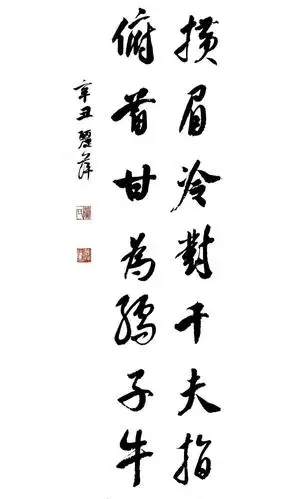 橫眉冷對千夫指
俯首甘為孺子牛
辛丑